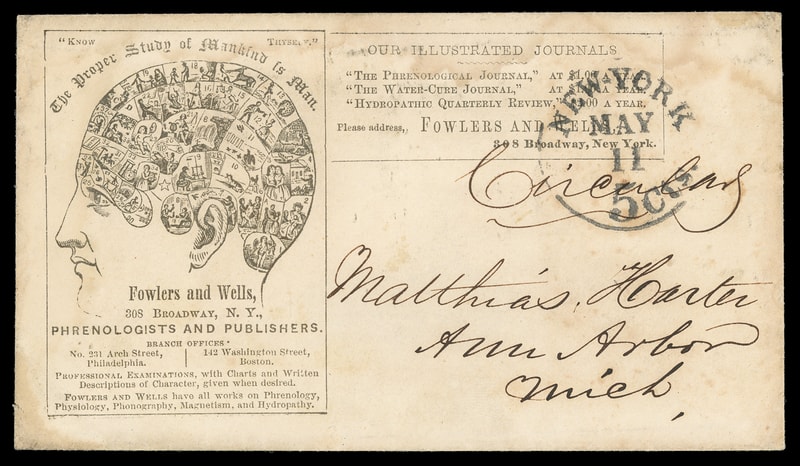 "Know Thyself."
The Proper Study of Mankind is Man.
Fowlers and Wells,
308 Broadway, N. Y.,
PHRENOLOGISTS AND PUBLISHERS.
BRANCH OFFICES
No. 231 Arch Street, Philadelphia.
142 Washington Street, Boston.
Professional Examinations, with Charts and Written
Descriptions of Character, given when desired.
Fowlers and Wells have all works on Phrenology,
Physiology, Phonography, Magnetism, and Hydropathy.
OUR ILLUSTRATED JOURNALS
"The Phrenological Journal," at $1.00 a Year.
"The Water-Cure Journal," at a Year.
"Hydropathic Quarterly Review," a year.
Please address, Fowlers and Wells,
308 Broadway, New York.
NEW-YORK
MAY
11
5 cts
Circular
Matthias Harter
Ann Arbor
Mich,